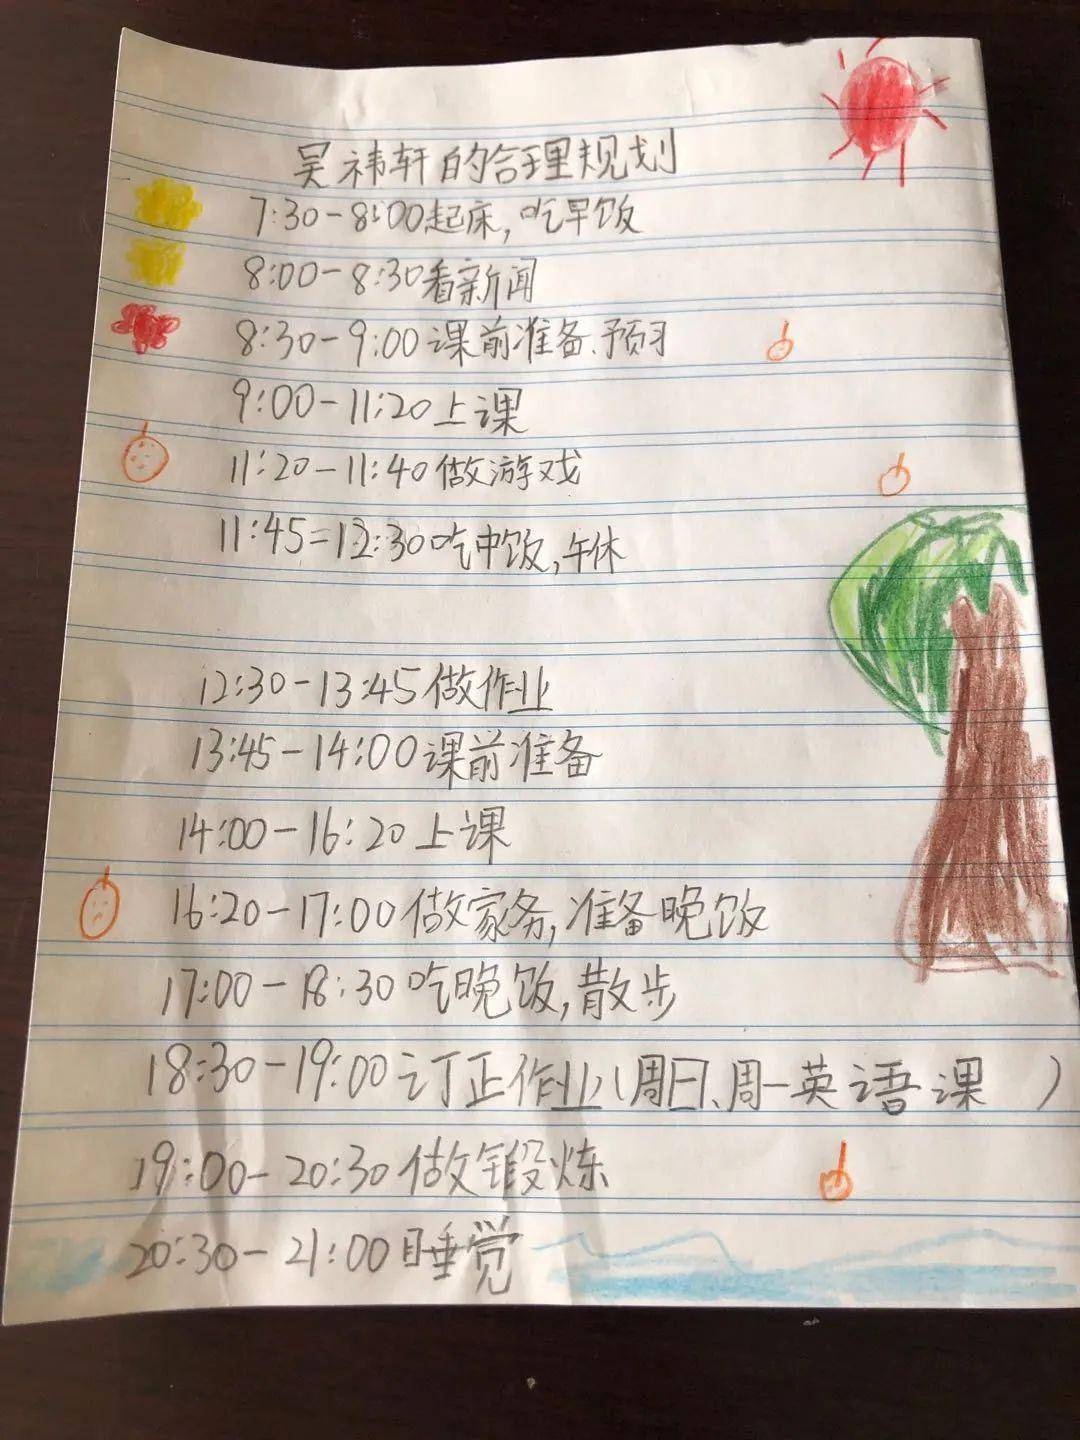 吴祎轩的合理规划
7:30-8:00起床,吃早饭
8:00-8:30看新闻
8:30-9:00课前准备、预习
9:00-11:20上课
11:20-11:40做游戏
11:45=12:30吃中饭,午休
12:30-13:45做作业
13:45-14:00课前准备
14:00-16:20上课
16:20-17:00做家务,准备晚饭
17:00-18:30吃晚饭,散步
18:30-19:00订正作业(周日、周一英语课 )
19:00-20:30做锻炼
20:30-21:00睡觉